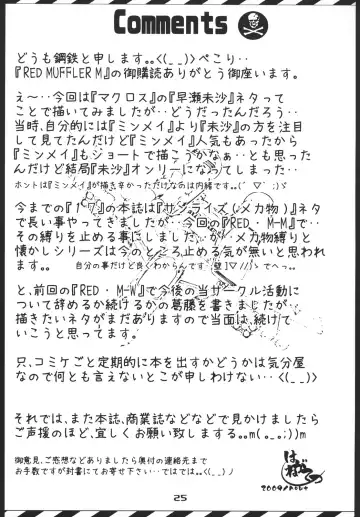 Comments
どうも鋼鉄と申します｡｡<(_ _)>ぺこり‥
『RED MUFFLER M』の御購読ありがとう御座います。
え～‥今回は『マクロス』の『早瀬未沙』ネタって
ことで描いてみましたが‥どうだったんだろう‥
当時､自分的には『ミンメイ』より『未沙』の方を注目
して見てたんだけど『ミンメイ』人気もあったから
『ミンメイ』もショートで描こうかなぁ‥とも思った
んだけど結局『未沙』オンリーになってしまった‥
ホントは『ミンメイ』が描き辛かっただけなのは内緒です｡｡(´ ▽｀ ;)ゞ
今までの の本誌は『サンライズ(メカ物)』ネタ
で長い事やってきましたが‥今回の『RED ・ M-M』で‥
その縛りを止める事にしました｡が‥メカ物縛りと
懐かしシリーズは今のところ止める気が無いと思われ
ます｡｡ 自分の事だけど良くわからんです [壁]▽//)ゝてへっ‥
と､前回の『RED ・ M-W』で今後の当サークル活動に
ついて辞めるか続けるかの葛藤を書きましたが‥
描きたいネタがまだありますので当面は､続けて
いこうと思ってます。
只､コミケごと定期的に本を出すかどうかは気分屋
なので何とも言えないとこが申しわけない‥<(_ _)
それでは､また本誌､商業誌などなどで見かけましたら
ご声援のほど､宜しくお願い致しまする｡｡m(_ _;))m
御意見､ご感想などありましたら奥付の連絡先まで
お手数ですが封書にてお寄せ下さい‥ではでは｡｡<(_ _)ノ
2009
25